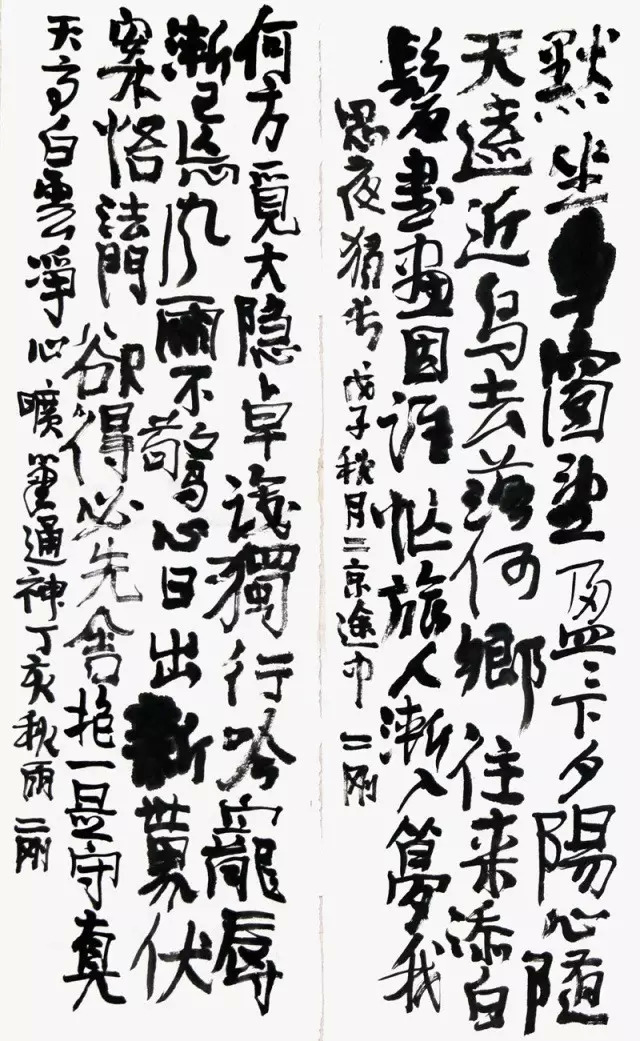 默坐車窗望盈〻下夕陽心隨
天遠近鳥去落何鄉往来添白
髮書畫因誰忙旅人漸入夢我
思夜猶长戊子秋月二京途中二刚
何方覓大隐卓識獨行吟寵辱
漸已忘风雨不驚心日出新世界伏
案悟法門欲得必先舍抱一是守真
天高白雲淨心曠筆通神丁亥秋雨二刚